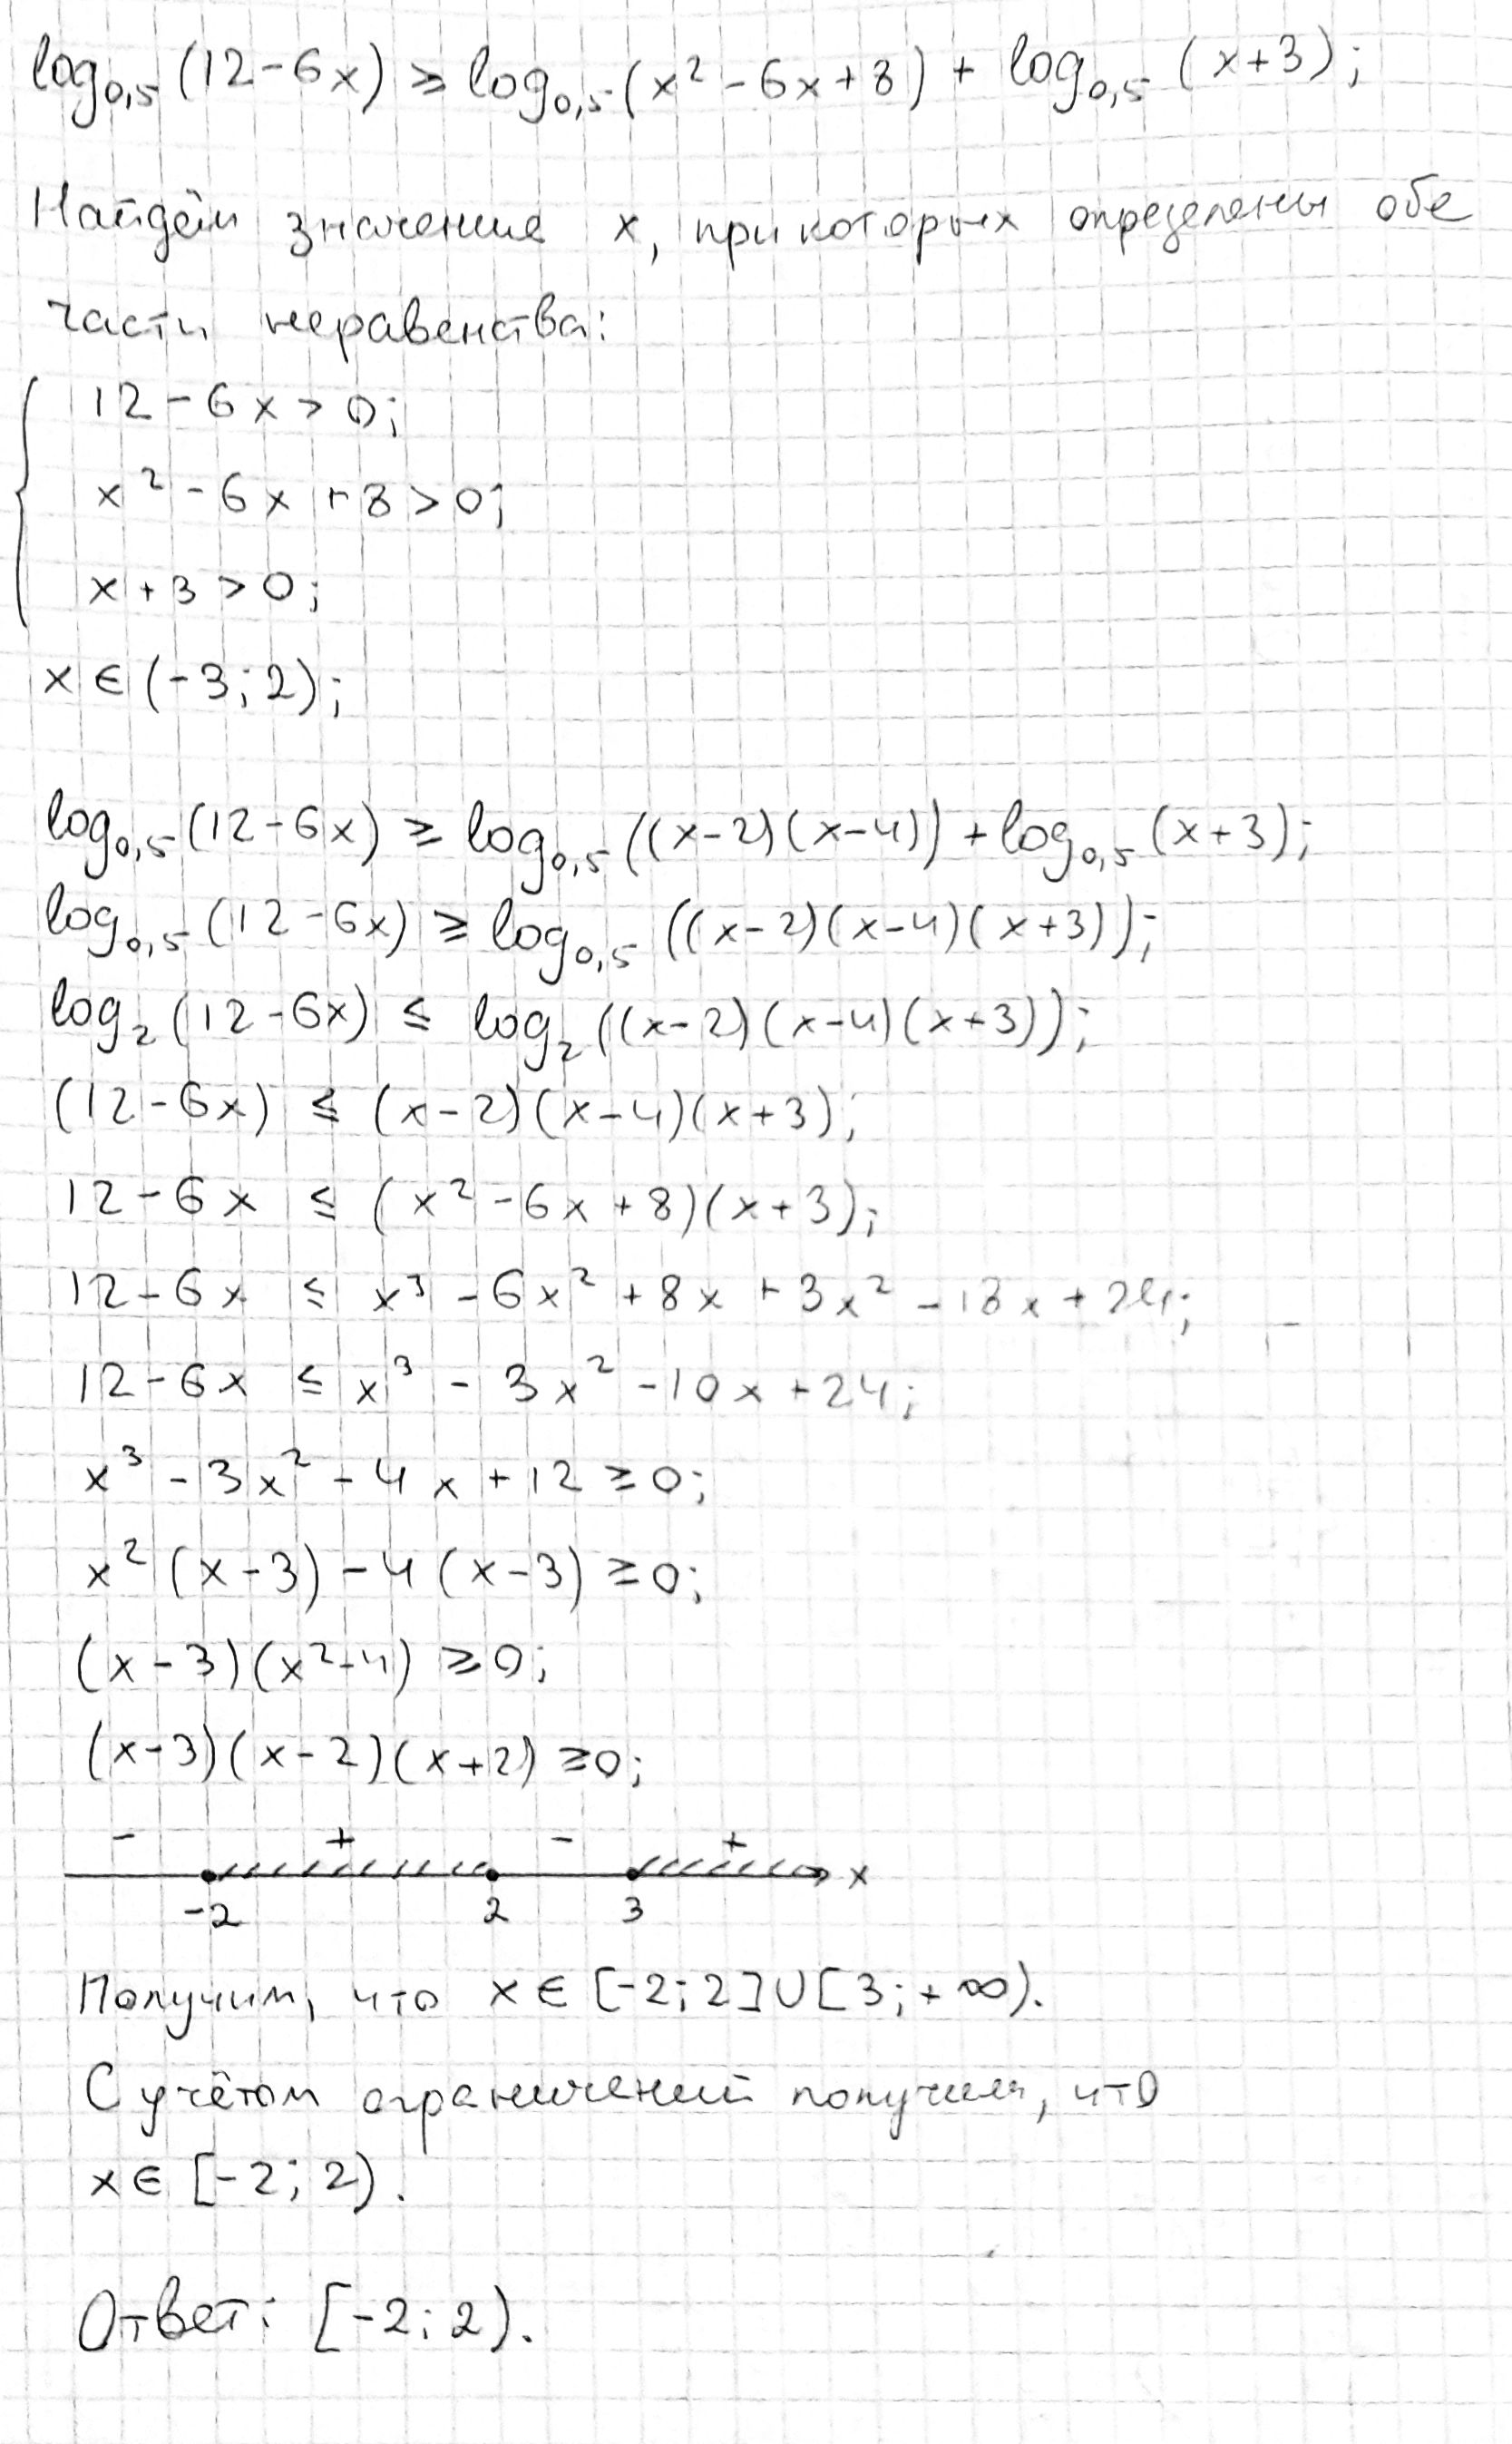 log₀,₅(12-6x) ≥ log₀,₅(x²-6x+8) + log₀,₅(x+3);
Найдём значения x, при которых определены обе
части неравенства:
12-6x>0;
x²-6x+8>0;
x+3>0;
x∈(-3;2);
log₀,₅(12-6x) ≥ log₀,₅((x-2)(x-4)) + log₀,₅(x+3);
log₀,₅(12-6x) ≥ log₀,₅((x-2)(x-4)(x+3));
log₂(12-6x) ≤ log₂((x-2)(x-4)(x+3));
(12-6x) ≤ (x-2)(x-4)(x+3);
12-6x ≤ (x²-6x+8)(x+3);
12-6x ≤ x³-6x²+8x+3x²-18x+24;
12-6x ≤ x³-3x²-10x+24;
x³-3x²-4x+12≥0;
x²(x-3)-4(x-3)≥0;
(x-3)(x²-4)≥0;
(x-3)(x-2)(x+2)≥0;
- + - +
x
-2 2 3
Получим, что x∈[-2;2]∪[3;+∞).
С учётом ограничений получим, что
x∈[-2;2).
Ответ: [-2;2).